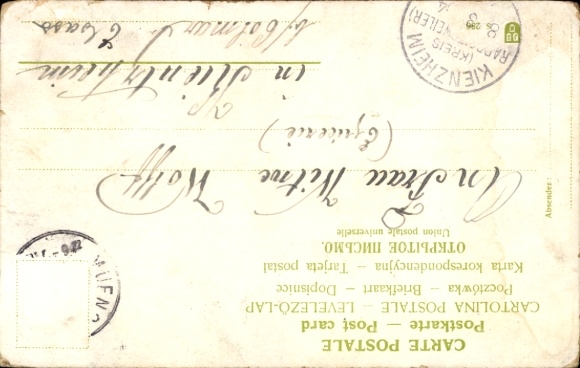 CARTE POSTALE
Postkarte — Post card
CARTOLINA POSTALE — LEVELEZÖ-LAP
Pocztówka — Briefkaart — Dopisnice
Karta korespondencyjna — Tarjeta postal
ОТКРЫТОЕ ПИСЬМО.
Union postale universelle
MUENS
Absender:
An Frau Witwe Wolff
(Epicerie)
in Kientzheim
b/ Colmar
Elsass
KIENZHEIM
(KREIS
RAPPOLTSWEILER)